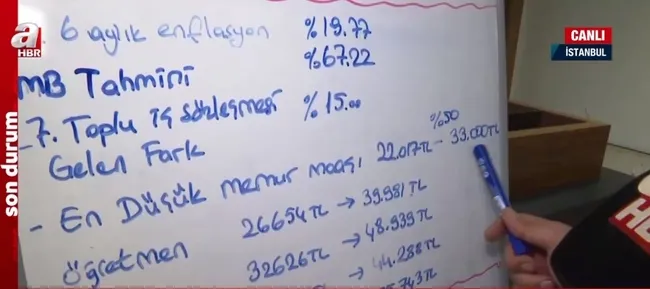 a
HBR
son durum
CANLI
İSTANBUL
6 aylık enflasyon %19.77
%67.22
MB Tahmini
-7. Toplu iş sözleşmesi %15.00
Gelen Fark
%50
- En Düşük memur maaşı 22.017TL - 33.000TL
öğretmen 26654 TL → 39.981 TL
32626 TL → 48.939 TL
→ 44.288 TL
743 TL